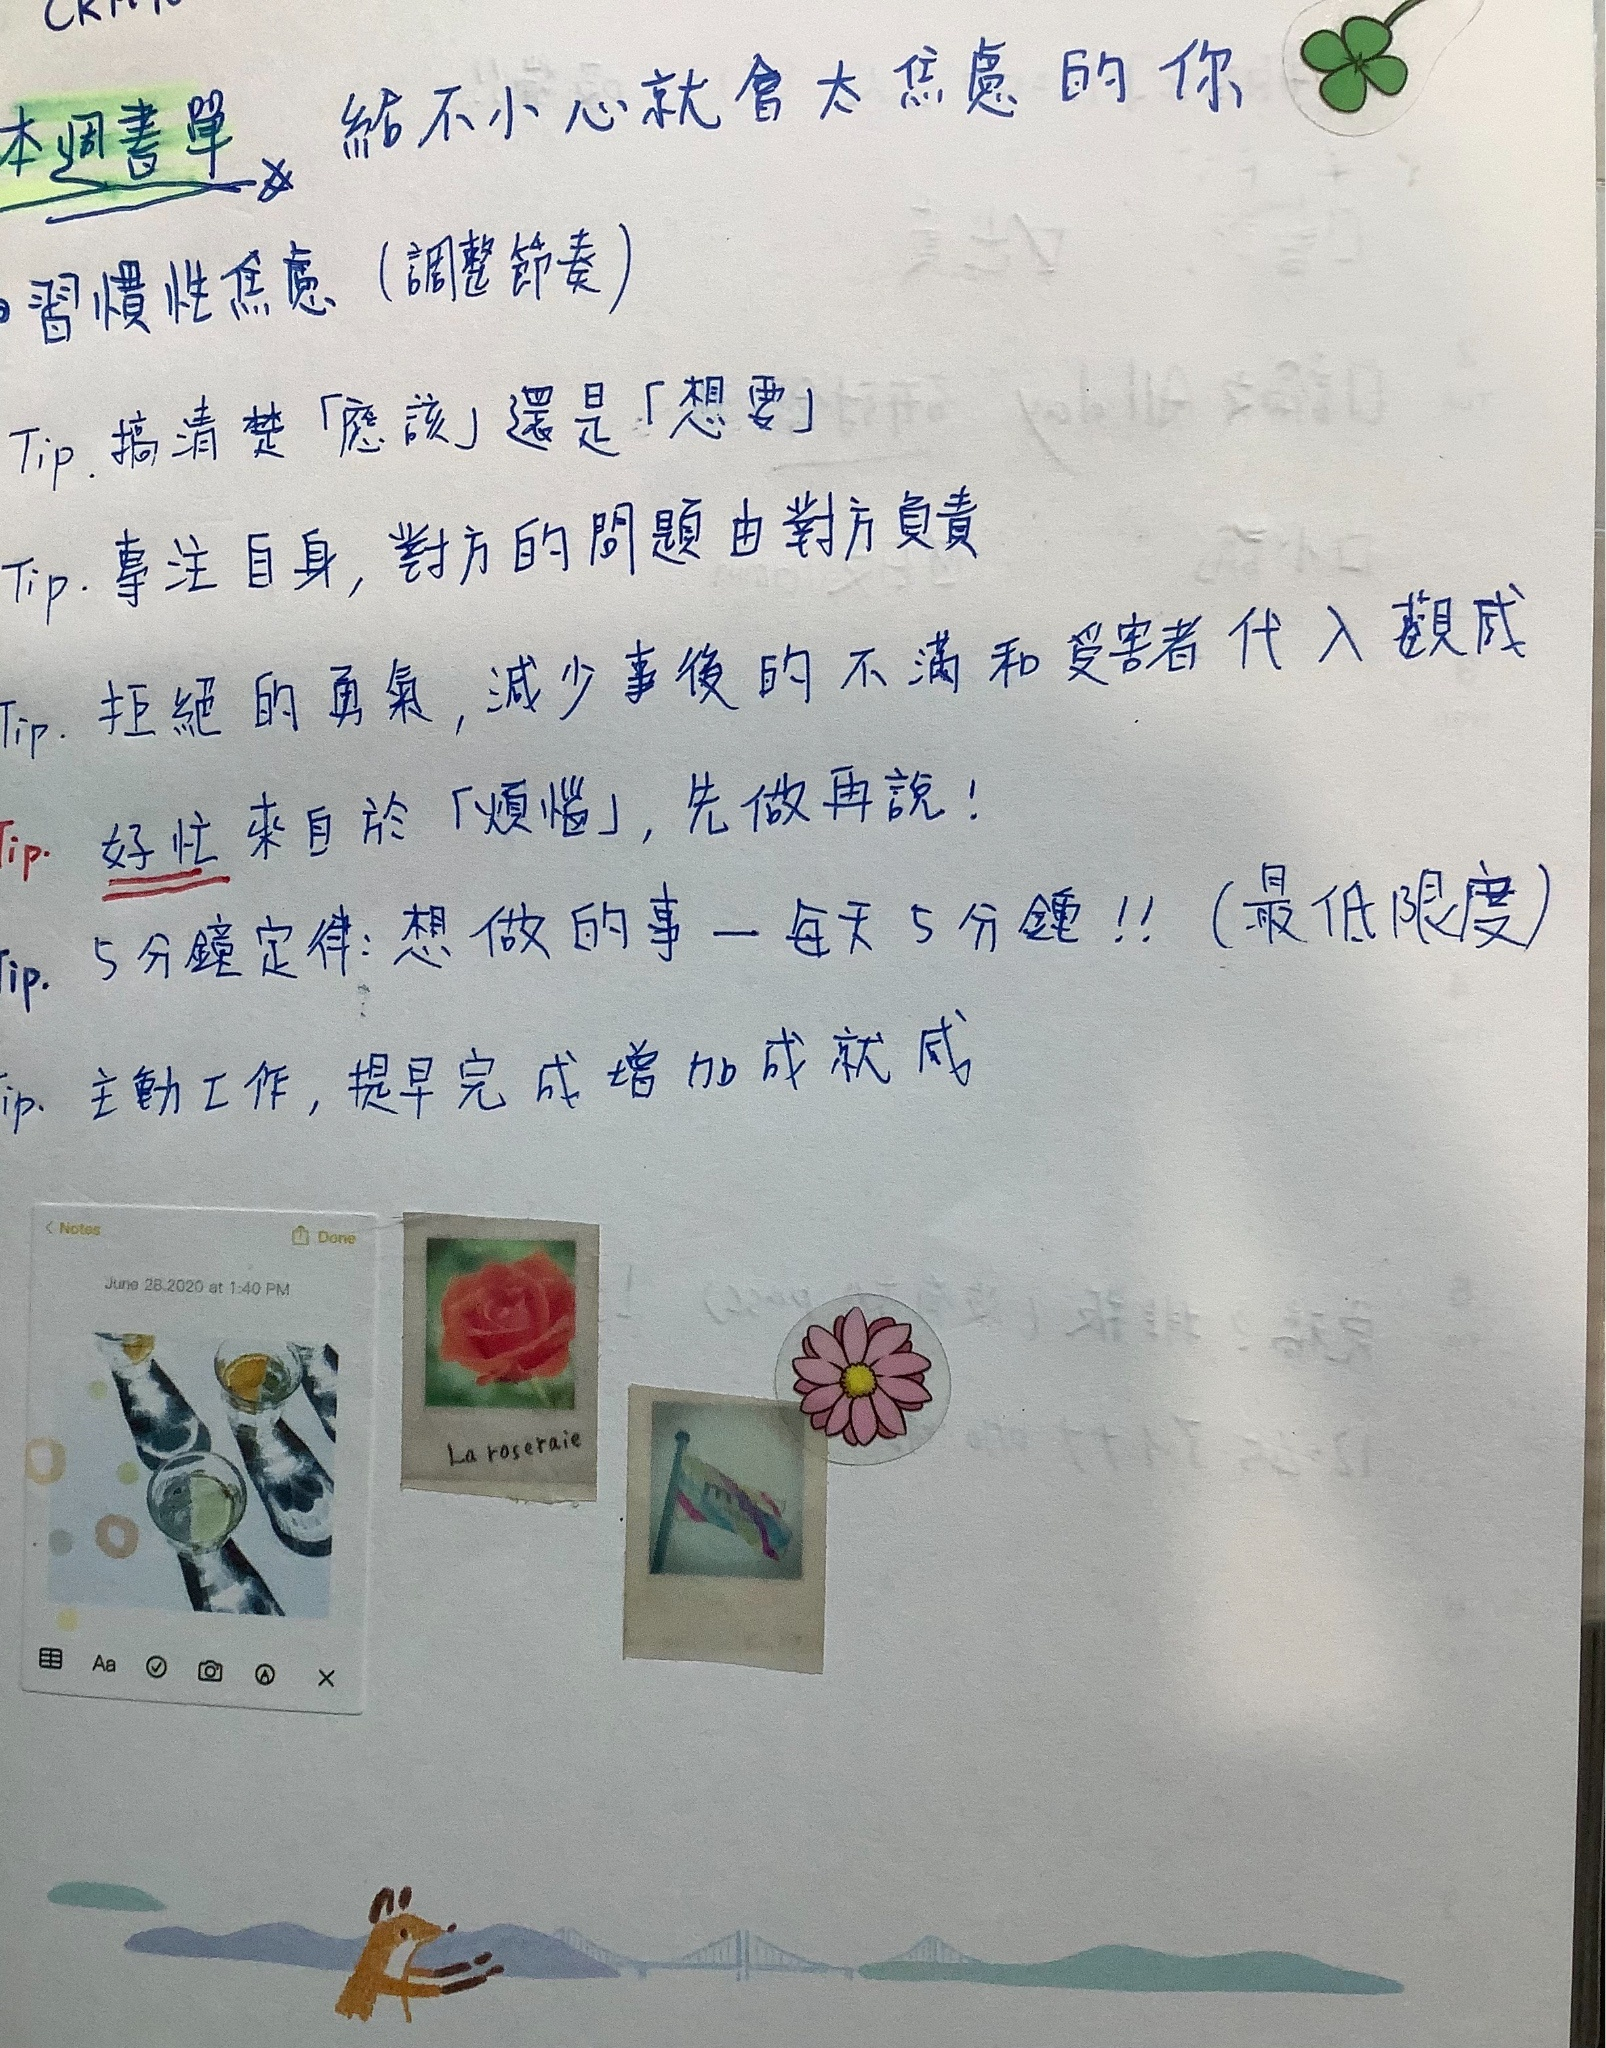 本週書單 給不小心就會太焦慮的你
習慣性焦慮（調整節奏）
Tip. 搞清楚「應該」還是「想要」
Tip. 專注自身, 對方的問題由對方負責
Tip. 拒絕的勇氣, 減少事後的不滿和受害者代入觀感
Tip. 好忙來自於「煩惱」, 先做再說！
Tip. 5分鐘定律: 想做的事—每天5分鐘!! (最低限度)
Tip. 主動工作, 提早完成增加成就感
< Notes Done
June 28.2020 at 1:40 PM
Aa
La roseraie